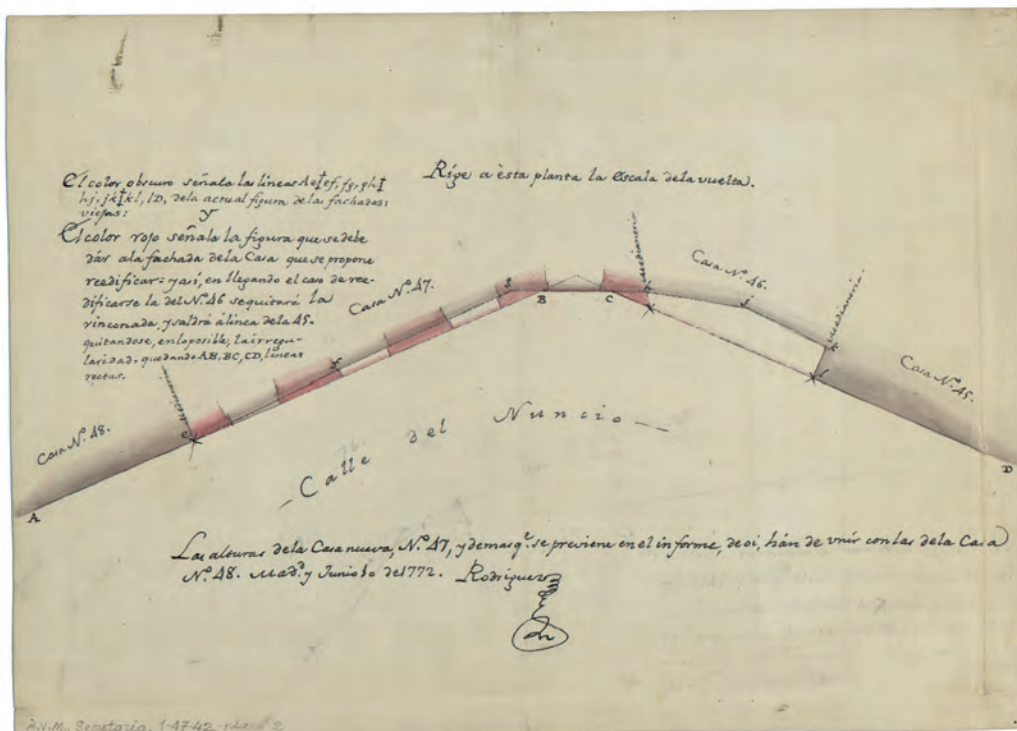 El color obscuro señala las lineas Ae‡ef, fg, gh‡
hj, jk‡kl, lD, dela actual figura de las fachadas
viejas: y
El color rojo señala la figura que se debe
dár ala fachada dela Casa que se propone
reedificar: y asi, en llegando el caso de ree-
dificarse la del N.º 46 se quitará la
rinconada, y saldrá á linea dela 45.
quitandose, en lo posible, la irregu-
laridad. quedando AB, BC, CD, lineas
rectas.
Ríge a ésta planta la escala dela vuelta.
Casa N.º 48.
Medianeria
Casa N.º 47.
Medianeria
Casa N.º 46.
Medianeria
Casa N.º 45.
A
e
f
g
B
C
h
j
k
l
D
Calle del Nuncio
Las alturas dela Casa nueva, N.º 47, y demas q.e se previene en el informe, de oi, hán de vnir con las dela Casa
N.º 48. Mad.d y Junio 10 de 1772. Rodriguez
A.V.M. Secretaría, 1-47-42 plano 2